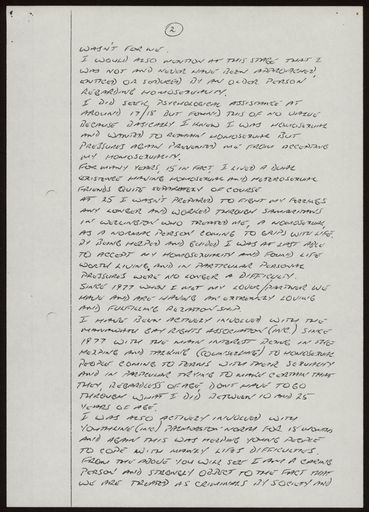 2
WASN'T FOR ME.
I WOULD ALSO MENTION AT THIS STAGE THAT I
WAS NOT AND NEVER HAVE BEEN APPROACHED,
ENTICED OR SEDUCED BY AN OLDER PERSON
REGARDING HOMOSEXUALITY.
I DID SEEK PSYCHOLOGICAL ASSISTANCE AT
AROUND 17/18 BUT FOUND THIS OF NO VALUE
BECAUSE BASICALLY I KNEW I WAS HOMOSEXUAL
AND WANTED TO REMAIN HOMOSEXUAL BUT
PRESSURES AGAIN PREVENTED ME FROM ACCEPTING
MY HOMOSEXUALITY.
FOR MANY YEARS, 15 IN FACT I LIVED A DUAL
EXISTENCE HAVING HOMOSEXUAL AND HETEROSEXUAL
FRIENDS QUITE SEPARATELY OF COURSE
AT 25 I WASN'T PREPARED TO FIGHT MY FEELINGS
ANY LONGER AND WORKED THROUGH SAMARITANS
IN WELLINGTON WHO TREATED ME, A HOMOSEXUAL,
AS A NORMAL PERSON COMING TO GRIPS WITH LIFE.
BY BEING HELPED AND GUIDED I WAS AT LAST ABLE
TO ACCEPT MY HOMOSEXUALITY AND FOUND LIFE
WORTH LIVING, AND IN PARTICULAR PERSONAL
PRESSURES WERE NO LONGER A DIFFICULTY.
SINCE 1977 WHEN I MET MY LOVER/PARTNER WE
HAVE AND ARE HAVING AN EXTREMELY LOVING
AND FULFILLING RELATIONSHIP.
I HAVE BEEN ACTIVELY INVOLVED WITH THE
MANAWATU GAY RIGHTS ASSOCIATION (INC) SINCE
1977 WITH THE MAIN INTEREST BEING IN THE
HELPING AND TALKING (COUNSELLING) TO HOMOSEXUAL
PEOPLE COMING TO TERMS WITH THEIR SEXUALITY
AND IN PARTICULAR TRYING TO MAKE CERTAIN THAT
THEY, REGARDLESS OF AGE, DON'T HAVE TO GO
THROUGH WHAT I DID BETWEEN 10 AND 25
YEARS OF AGE.
I WAS ALSO ACTIVELY INVOLVED WITH
YOUTHLINE (INC) PALMERSTON NORTH FOR 15 MONTHS
AND AGAIN THIS WAS HELPING YOUNG PEOPLE
TO COPE WITH MAINLY LIFES DIFFICULTIES.
FROM THE ABOVE YOU WILL SEE I AM A CARING
PERSON AND STRONGLY OBJECT TO THE FACT THAT
WE ARE TREATED AS CRIMINALS BY SOCIETY AND